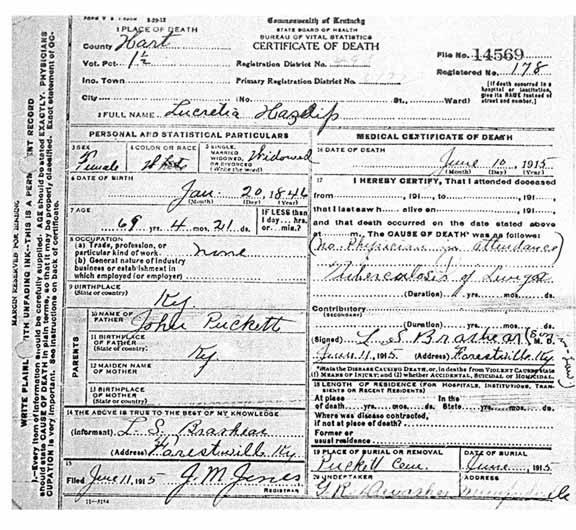 FORM V. S. 3-29-12
Commonwealth of Kentucky
STATE BOARD OF HEALTH
BUREAU OF VITAL STATISTICS
CERTIFICATE OF DEATH
1 PLACE OF DEATH
County Hart
Vot. Pct. 1½
Inc. Town
City
Registration District No.
Primary Registration District No.
(No. St., Ward)
File No. 14569
Registered No. 178
[If death occurred in a hospital or institution, give its NAME instead of street and number.]
2 FULL NAME Lucretia Hazelip
PERSONAL AND STATISTICAL PARTICULARS
3 SEX
Female
4 COLOR OR RACE
White
5 SINGLE, MARRIED, WIDOWED, OR DIVORCED (Write the word)
Widowed
6 DATE OF BIRTH
Jan. 20, 1846
(Month) (Day) (Year)
7 AGE
69 yrs. 4 mos. 21 ds.
If LESS than 1 day, hrs. or min.?
8 OCCUPATION
(a) Trade, profession, or particular kind of work none
(b) General nature of industry business or establishment in which employed (or employer)
9 BIRTHPLACE
(State or country) Ky.
PARENTS
10 NAME OF FATHER John Puckett
11 BIRTHPLACE OF FATHER
(State or country) Ky
12 MAIDEN NAME OF MOTHER
13 BIRTHPLACE OF MOTHER
(State or country)
14 THE ABOVE IS TRUE TO THE BEST OF MY KNOWLEDGE
(Informant) L. S. Brashear
(Address) Forestville Ky.
15
Filed June 11, 1915 J M Jones
REGISTRAR
11-3184
MEDICAL CERTIFICATE OF DEATH
16 DATE OF DEATH
June 10, 1915
(Month) (Day) (Year)
17 I HEREBY CERTIFY, That I attended deceased
from , 191 , to , 191 ,
that I last saw h alive on , 191 ,
and that death occurred on the date stated above
at m. The CAUSE OF DEATH* was as follows:
(No Physician in attendance)
Tuberculosis of Lungs
(Duration) yrs. mos. ds.
Contributory
(SECONDARY)
(Duration) yrs. mos. ds.
(Signed) L. S. Brashear M. D.
June 11, 1915 (Address) Forestville Ky.
*State the DISEASE CAUSING DEATH, or, in deaths from VIOLENT CAUSES state (1) MEANS OF INJURY; and (2) whether ACCIDENTAL, SUICIDAL or HOMICIDAL.
18 LENGTH OF RESIDENCE (FOR HOSPITALS, INSTITUTIONS, TRANSIENTS OR RECENT RESIDENTS)
At place of death yrs. mos. ds. In the State yrs. mos. ds.
Where was disease contracted, if not at place of death?
Former or usual residence
19 PLACE OF BURIAL OR REMOVAL
Puckett Cem
DATE OF BURIAL
June , 1915
20 UNDERTAKER
ADDRESS
MARGIN RESERVED FOR BINDING
1.—Every item of information should be carefully supplied. AGE should be stated EXACTLY. PHYSICIANS should state CAUSE OF DEATH in plain terms, so that it may be properly classified. Exact statement of OCCUPATION is very important. See instructions on back of certificate.